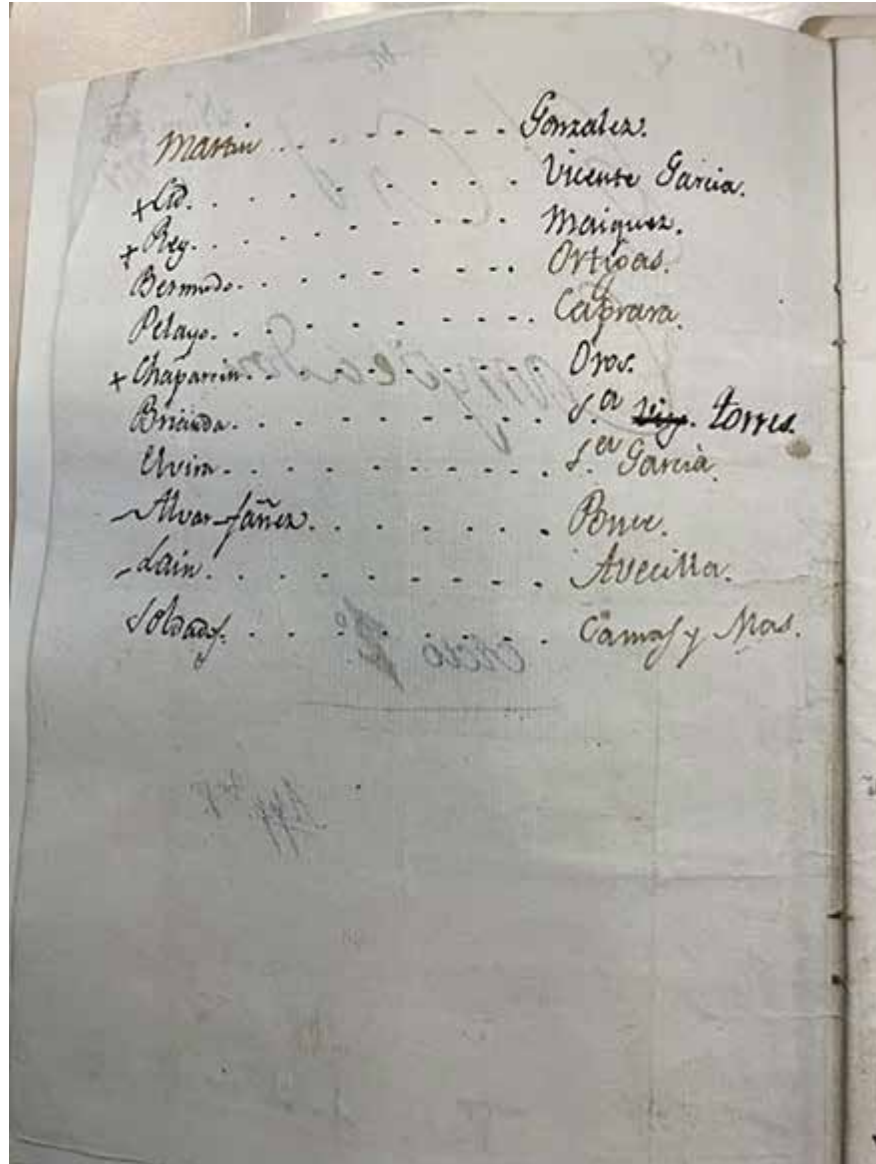 Martin . . . . . . . . Gonzalez.
+ Cid. . . . . . . . . . Vicente Garcia.
+ Rey. . . . . . . . . . Maiquez.
Bermudo. . . . . . . . . Ortigas.
Pelayo. . . . . . . . . . Caprara.
+ Chaparrin. . . . . . . . . Oros.
Brianda. . . . . . . . . . S.ra Torres.
Elvira. . . . . . . . . . S.ra Garcia.
Alvar-fañez. . . . . . . . Ponce.
Lain. . . . . . . . . . Avecilla.
Soldados. . . . . . . . . Camas y Mas.
Acto 2º